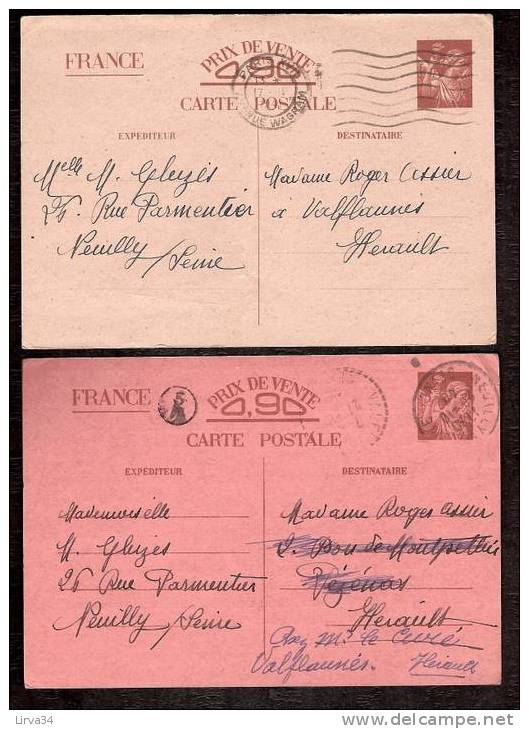 FRANCE
PRIX DE VENTE
0,90
CARTE POSTALE
EXPÉDITEUR
DESTINATAIRE
Melle M. Gleizes
26 Rue Parmentier
Neuilly /Seine
Madame Roger Assier
à Valflaunès
Herault
FRANCE
PRIX DE VENTE
0,90
CARTE POSTALE
EXPÉDITEUR
DESTINATAIRE
Mademoiselle
M. Gleizes
26 Rue Parmentier
Neuilly /Seine
Madame Roger Assier
2. Bon de Montpellier
Pézénas
Herault
chez Mr le Curé
Valflaunès. Hérault
Lirva34
delcampe.net